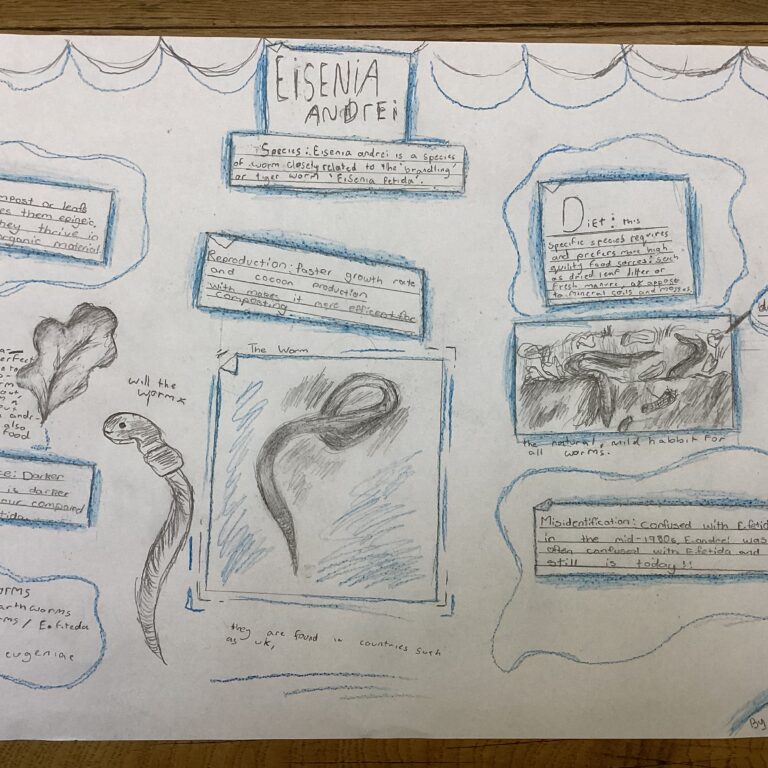 EISENIA
ANDREI
Species: Eisenia andrei is a species
of worm closely related to the 'brandling'
or tiger worm 'Eisenia fetida'.
compost or leafs
them epigeic,
they thrive in
organic material
Reproduction: faster growth rate
and cocoon production
with makes it more efficent for
composting
DIET: this
Specific species requires
and prefers more high
quility food sorces: such
as dried leaf litter or
fresh manure, as oppose
to mineral soils and mosses.
The Worm
will the
worm
also
food
the natural, wild habbit for
all worms.
Darker
is darker
colour compared
fetida.
Misidentification: confused with E.fetida
in the mid-1980s, E.andrei was
often confused with E.fetida and
still is today!!
earthworms
worms / E.fiteda
eugeniae
they are found in countries such
as uk,
By